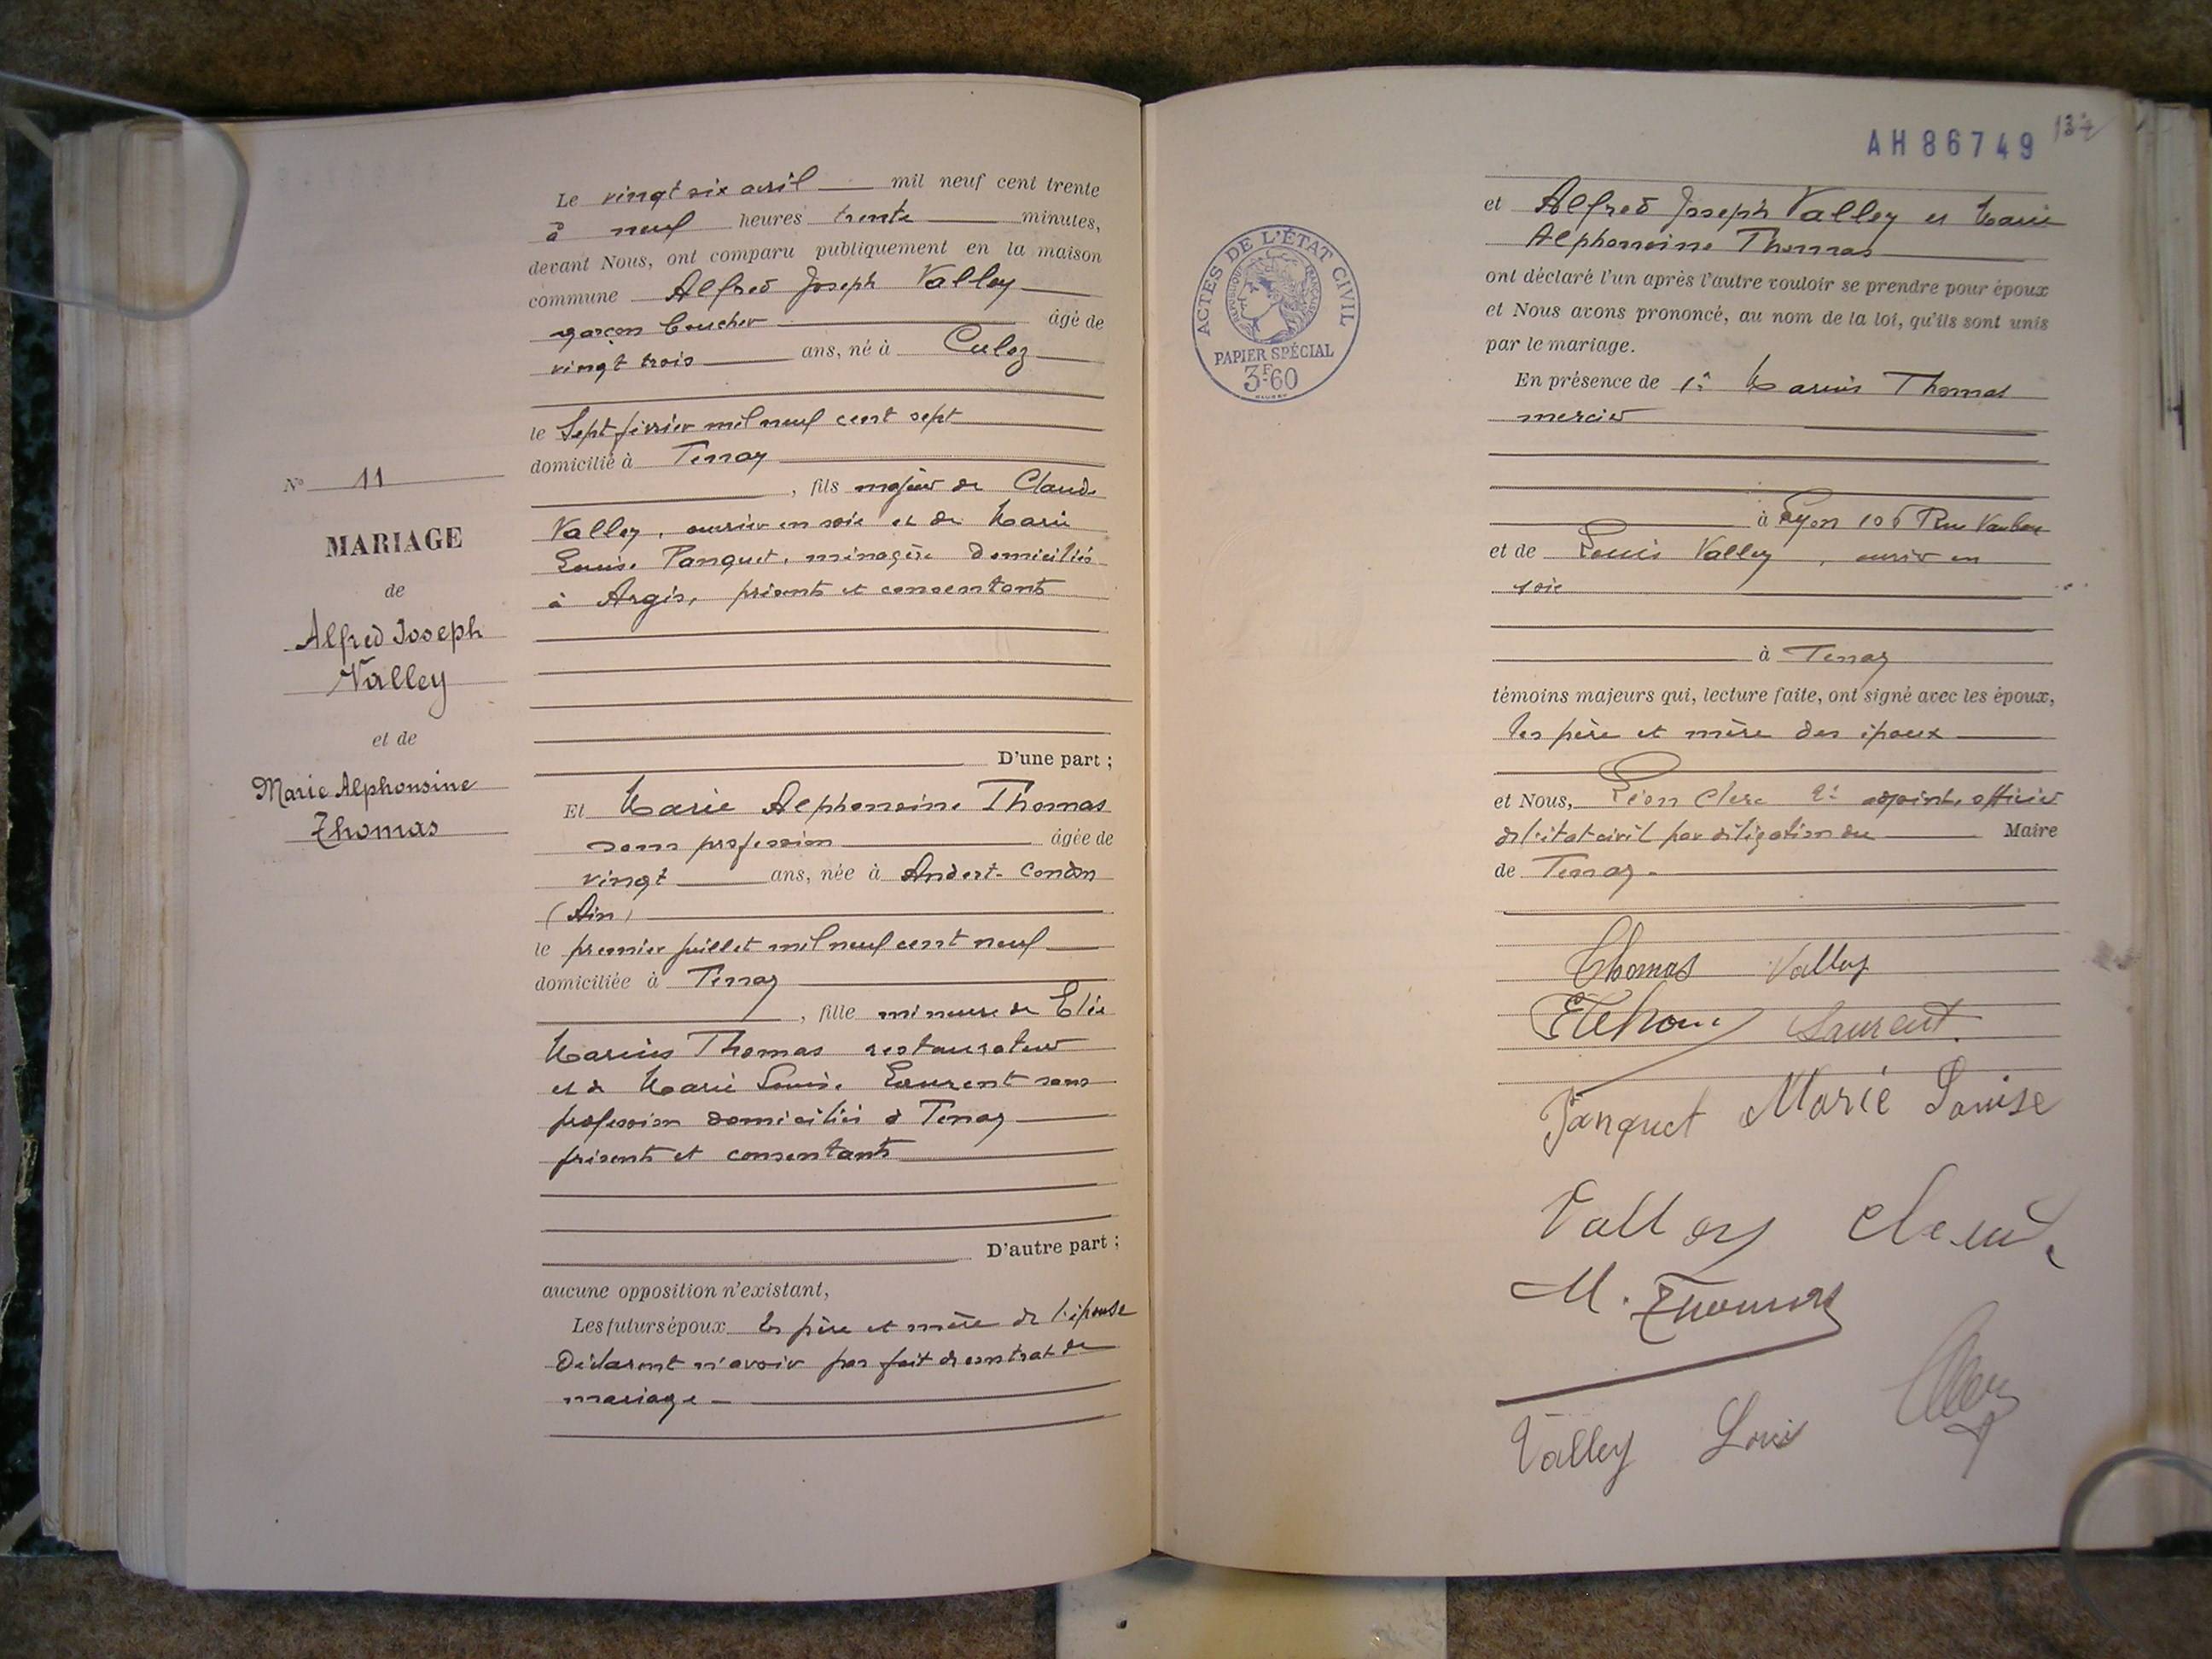 Le vingt six avril mil neuf cent trente
à neuf heures trente minutes,
devant Nous, ont comparu publiquement en la maison
commune Alfred Joseph Valley
garçon boucher âgé de
vingt trois ans, né à Culoz
le Sept février mil neuf cent sept
domicilié à Tenay
, fils majeur de Claude
Valley, ouvrier en soie et de Marie
Louise Panquet, ménagère domiciliés
à Argis, présents et consentants
D'une part ;
N° 11
MARIAGE
de
Alfred Joseph
Valley
et de
Marie Alphonsine
Thomas
Et Marie Alphonsine Thomas
sans profession âgée de
vingt ans, née à Andert-Condon
(Ain)
le premier juillet mil neuf cent neuf
domiciliée à Tenay
, fille mineure de Elie
Marius Thomas restaurateur
et de Marie Louise Laurent sans
profession domiciliés à Tenay
présents et consentants
D'autre part ;
aucune opposition n'existant,
Les futurs époux les père et mère de l'épouse
Déclarent n'avoir pas fait de contrat de
mariage
AH 86749
ACTES DE L'ÉTAT CIVIL
RÉPUBLIQUE FRANÇAISE
PAPIER SPÉCIAL
3F60
et Alfred Joseph Valley et Marie
Alphonsine Thomas
ont déclaré l'un après l'autre vouloir se prendre pour époux
et Nous avons prononcé, au nom de la loi, qu'ils sont unis
par le mariage.
En présence de Marius Thomas
mercier
à Lyon 106 Rue Vauban
et de Louis Valley, ouvrier en
soie
à Tenay
témoins majeurs qui, lecture faite, ont signé avec les époux,
les père et mère des époux
et Nous, Léon Clerc 2e adjoint, officier
de l'état civil par délégation du Maire
de Tenay.
Thomas Valley
Laurent.
Panquet Marie Louise
Valley Claude
M. Thomas
Valley Louis